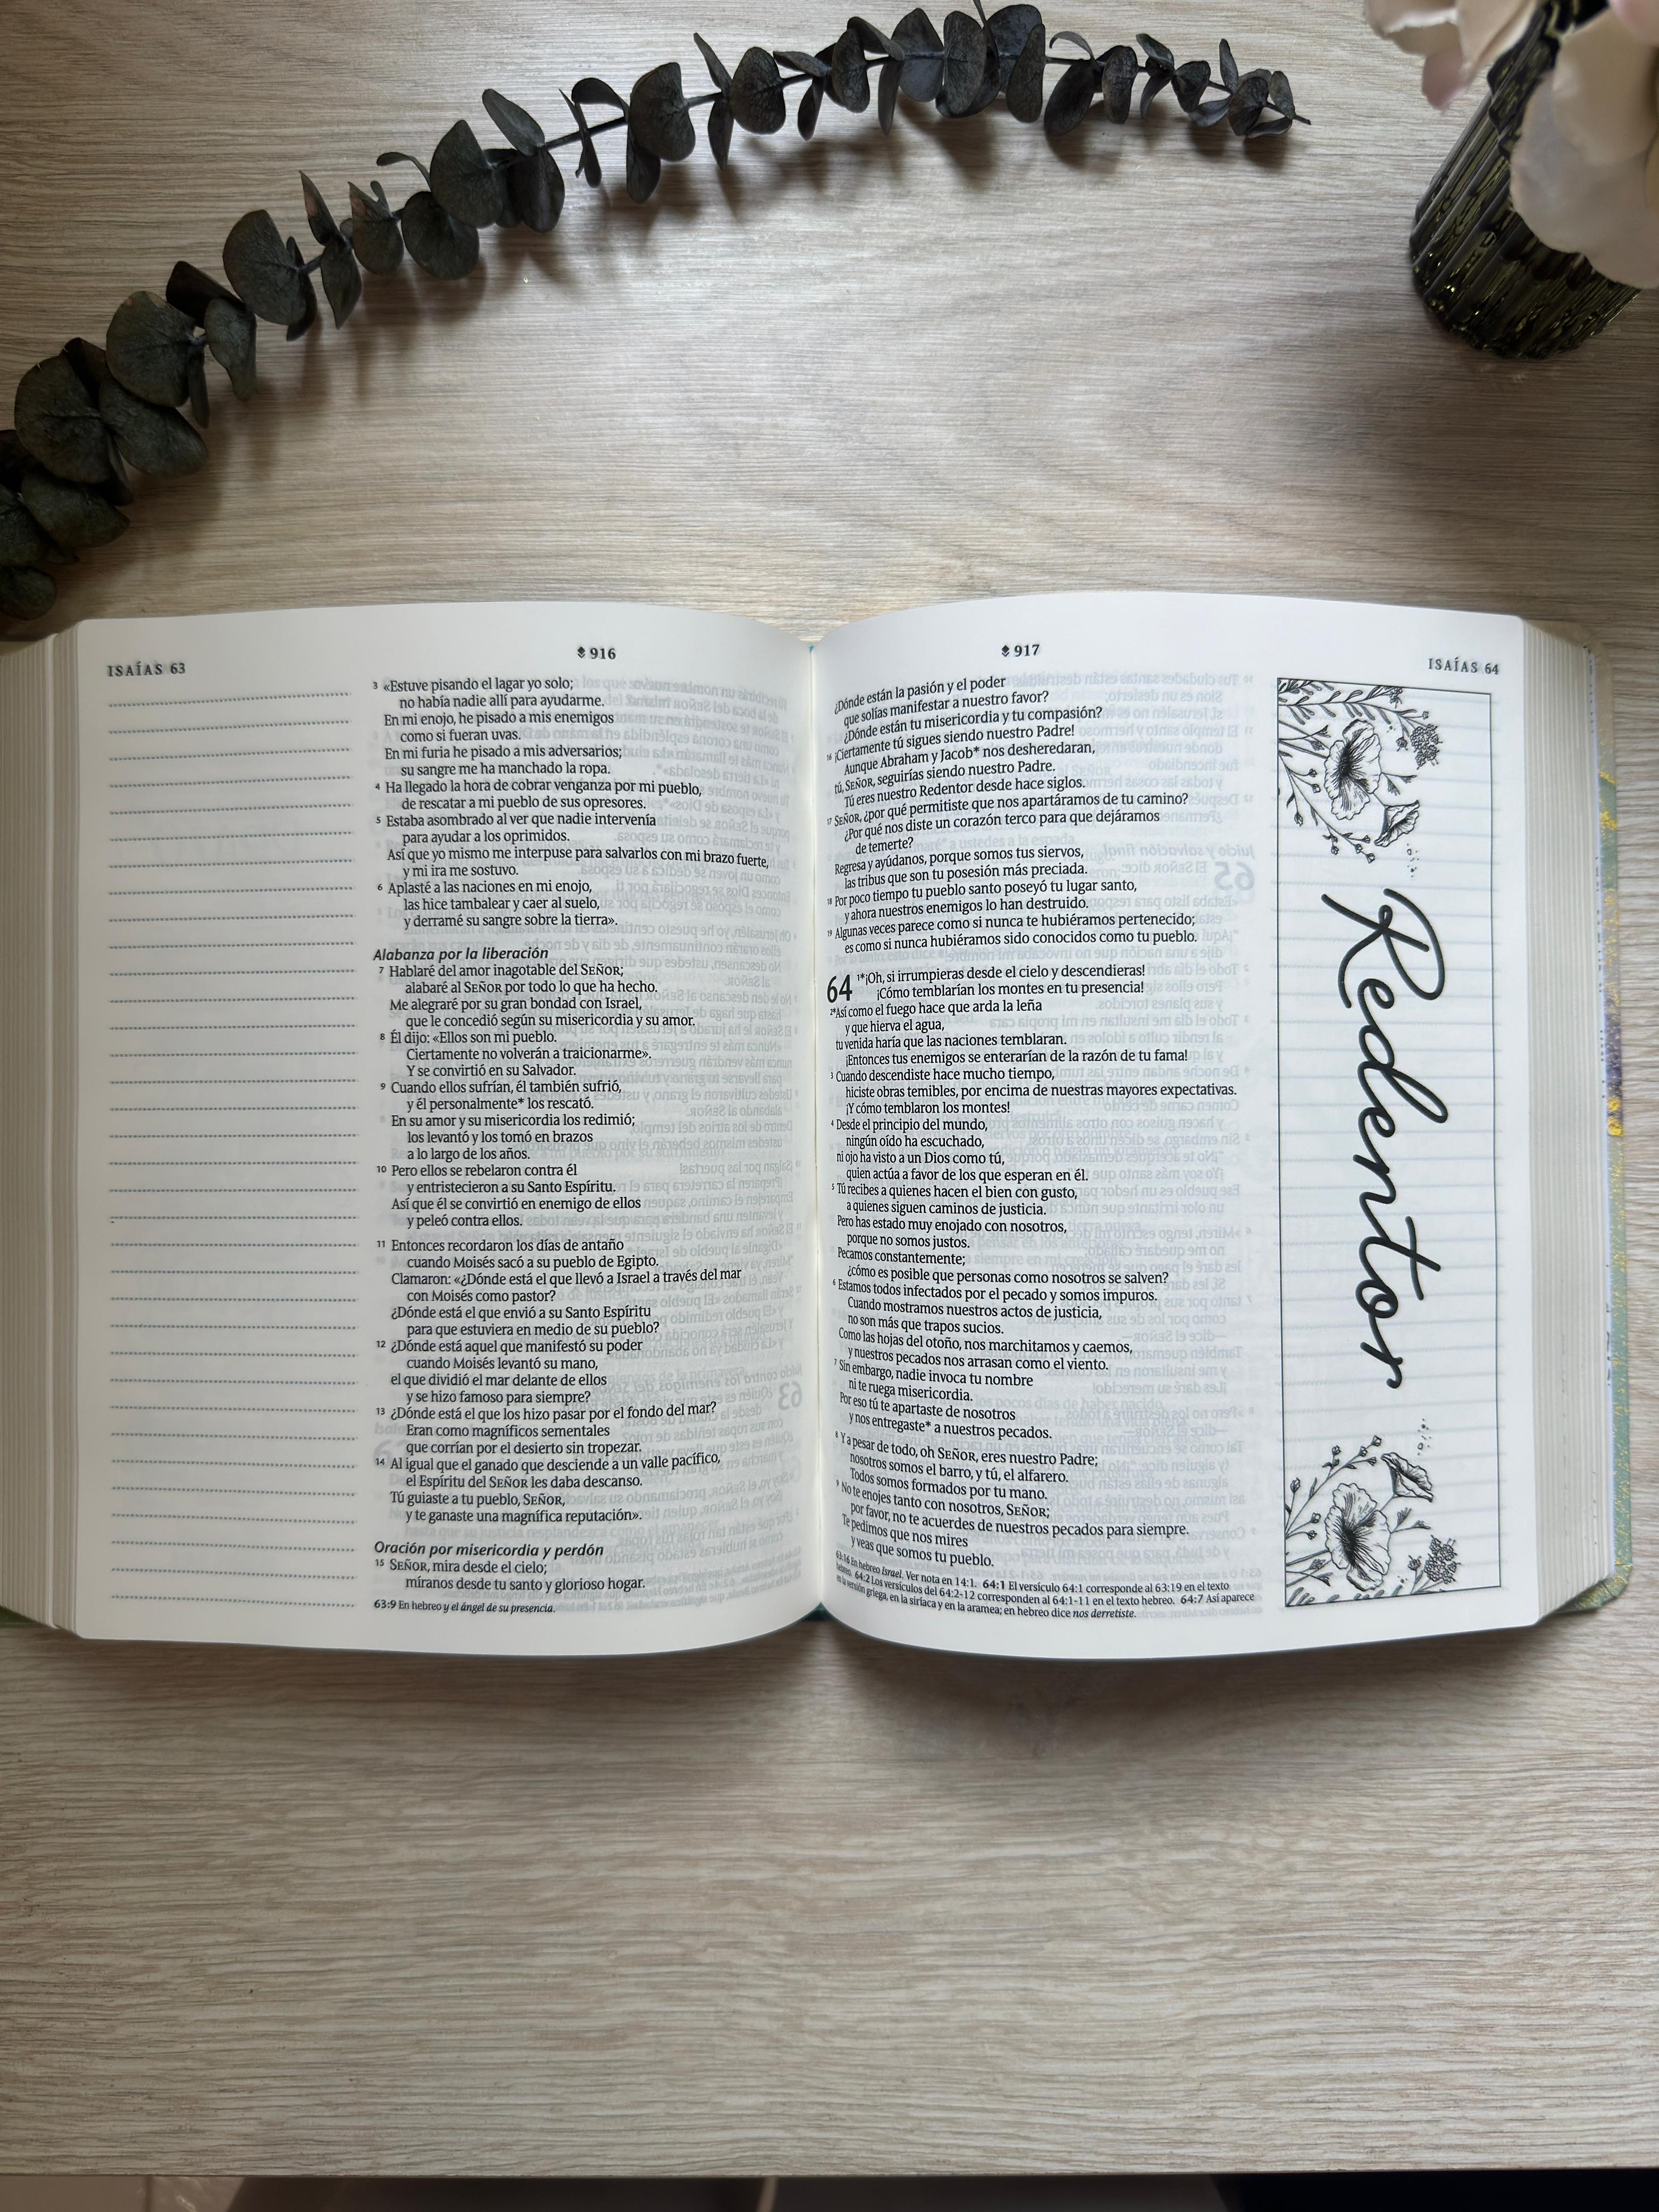 ISAÍAS 63
916
3 «Estuve pisando el lagar yo solo;
no había nadie allí para ayudarme.
En mi enojo, he pisado a mis enemigos
como si fueran uvas.
En mi furia he pisado a mis adversarios;
su sangre me ha manchado la ropa.
4 Ha llegado la hora de cobrar venganza por mi pueblo,
de rescatar a mi pueblo de sus opresores.
5 Estaba asombrado al ver que nadie intervenía
para ayudar a los oprimidos.
Así que yo mismo me interpuse para salvarlos con mi brazo fuerte,
y mi ira me sostuvo.
6 Aplasté a las naciones en mi enojo,
las hice tambalear y caer al suelo,
y derramé su sangre sobre la tierra».
Alabanza por la liberación
7 Hablaré del amor inagotable del SEÑOR;
alabaré al SEÑOR por todo lo que ha hecho.
Me alegraré por su gran bondad con Israel,
que le concedió según su misericordia y su amor.
8 Él dijo: «Ellos son mi pueblo.
Ciertamente no volverán a traicionarme».
Y se convirtió en su Salvador.
9 Cuando ellos sufrían, él también sufrió,
y él personalmente* los rescató.
En su amor y su misericordia los redimió;
los levantó y los tomó en brazos
a lo largo de los años.
10 Pero ellos se rebelaron contra él
y entristecieron a su Santo Espíritu.
Así que él se convirtió en enemigo de ellos
y peleó contra ellos.
11 Entonces recordaron los días de antaño
cuando Moisés sacó a su pueblo de Egipto.
Clamaron: «¿Dónde está el que llevó a Israel a través del mar
con Moisés como pastor?
¿Dónde está el que envió a su Santo Espíritu
para que estuviera en medio de su pueblo?
12 ¿Dónde está aquel que manifestó su poder
cuando Moisés levantó su mano,
el que dividió el mar delante de ellos
y se hizo famoso para siempre?
13 ¿Dónde está el que los hizo pasar por el fondo del mar?
Eran como magníficos sementales
que corrían por el desierto sin tropezar.
14 Al igual que el ganado que desciende a un valle pacífico,
el Espíritu del SEÑOR les daba descanso.
Tú guiaste a tu pueblo, SEÑOR,
y te ganaste una magnífica reputación».
Oración por misericordia y perdón
15 SEÑOR, mira desde el cielo;
míranos desde tu santo y glorioso hogar.
63:9 En hebreo y el ángel de su presencia.
917
ISAÍAS 64
¿Dónde están la pasión y el poder
que solías manifestar a nuestro favor?
¿Dónde están tu misericordia y tu compasión?
16 ¡Ciertamente tú sigues siendo nuestro Padre!
Aunque Abraham y Jacob* nos desheredaran,
tú, SEÑOR, seguirías siendo nuestro Padre.
Tú eres nuestro Redentor desde hace siglos.
17 SEÑOR, ¿por qué permitiste que nos apartáramos de tu camino?
¿Por qué nos diste un corazón terco para que dejáramos
de temerte?
Regresa y ayúdanos, porque somos tus siervos,
las tribus que son tu posesión más preciada.
18 Por poco tiempo tu pueblo santo poseyó tu lugar santo,
y ahora nuestros enemigos lo han destruido.
19 Algunas veces parece como si nunca te hubiéramos pertenecido;
es como si nunca hubiéramos sido conocidos como tu pueblo.
64 1*¡Oh, si irrumpieras desde el cielo y descendieras!
¡Cómo temblarían los montes en tu presencia!
2*Así como el fuego hace que arda la leña
y que hierva el agua,
tu venida haría que las naciones temblaran.
¡Entonces tus enemigos se enterarían de la razón de tu fama!
3 Cuando descendiste hace mucho tiempo,
hiciste obras temibles, por encima de nuestras mayores expectativas.
¡Y cómo temblaron los montes!
4 Desde el principio del mundo,
ningún oído ha escuchado,
ni ojo ha visto a un Dios como tú,
quien actúa a favor de los que esperan en él.
5 Tú recibes a quienes hacen el bien con gusto,
a quienes siguen caminos de justicia.
Pero has estado muy enojado con nosotros,
porque no somos justos.
Pecamos constantemente;
¿cómo es posible que personas como nosotros se salven?
6 Estamos todos infectados por el pecado y somos impuros.
Cuando mostramos nuestros actos de justicia,
no son más que trapos sucios.
Como las hojas del otoño, nos marchitamos y caemos,
y nuestros pecados nos arrasan como el viento.
7 Sin embargo, nadie invoca tu nombre
ni te ruega misericordia.
Por eso tú te apartaste de nosotros
y nos entregaste* a nuestros pecados.
8 Y a pesar de todo, oh SEÑOR, eres nuestro Padre;
nosotros somos el barro, y tú, el alfarero.
Todos somos formados por tu mano.
9 No te enojes tanto con nosotros, SEÑOR;
por favor, no te acuerdes de nuestros pecados para siempre.
Te pedimos que nos mires
y veas que somos tu pueblo.
63:16 En hebreo Israel. Ver nota en 14:1. 64:1 El versículo 64:1 corresponde al 63:19 en el texto
hebreo. 64:2 Los versículos del 64:2-12 corresponden al 64:1-11 en el texto hebreo. 64:7 Así aparece
en la versión griega, en la siríaca y en la aramea; en hebreo dice nos derretiste.
Redentor